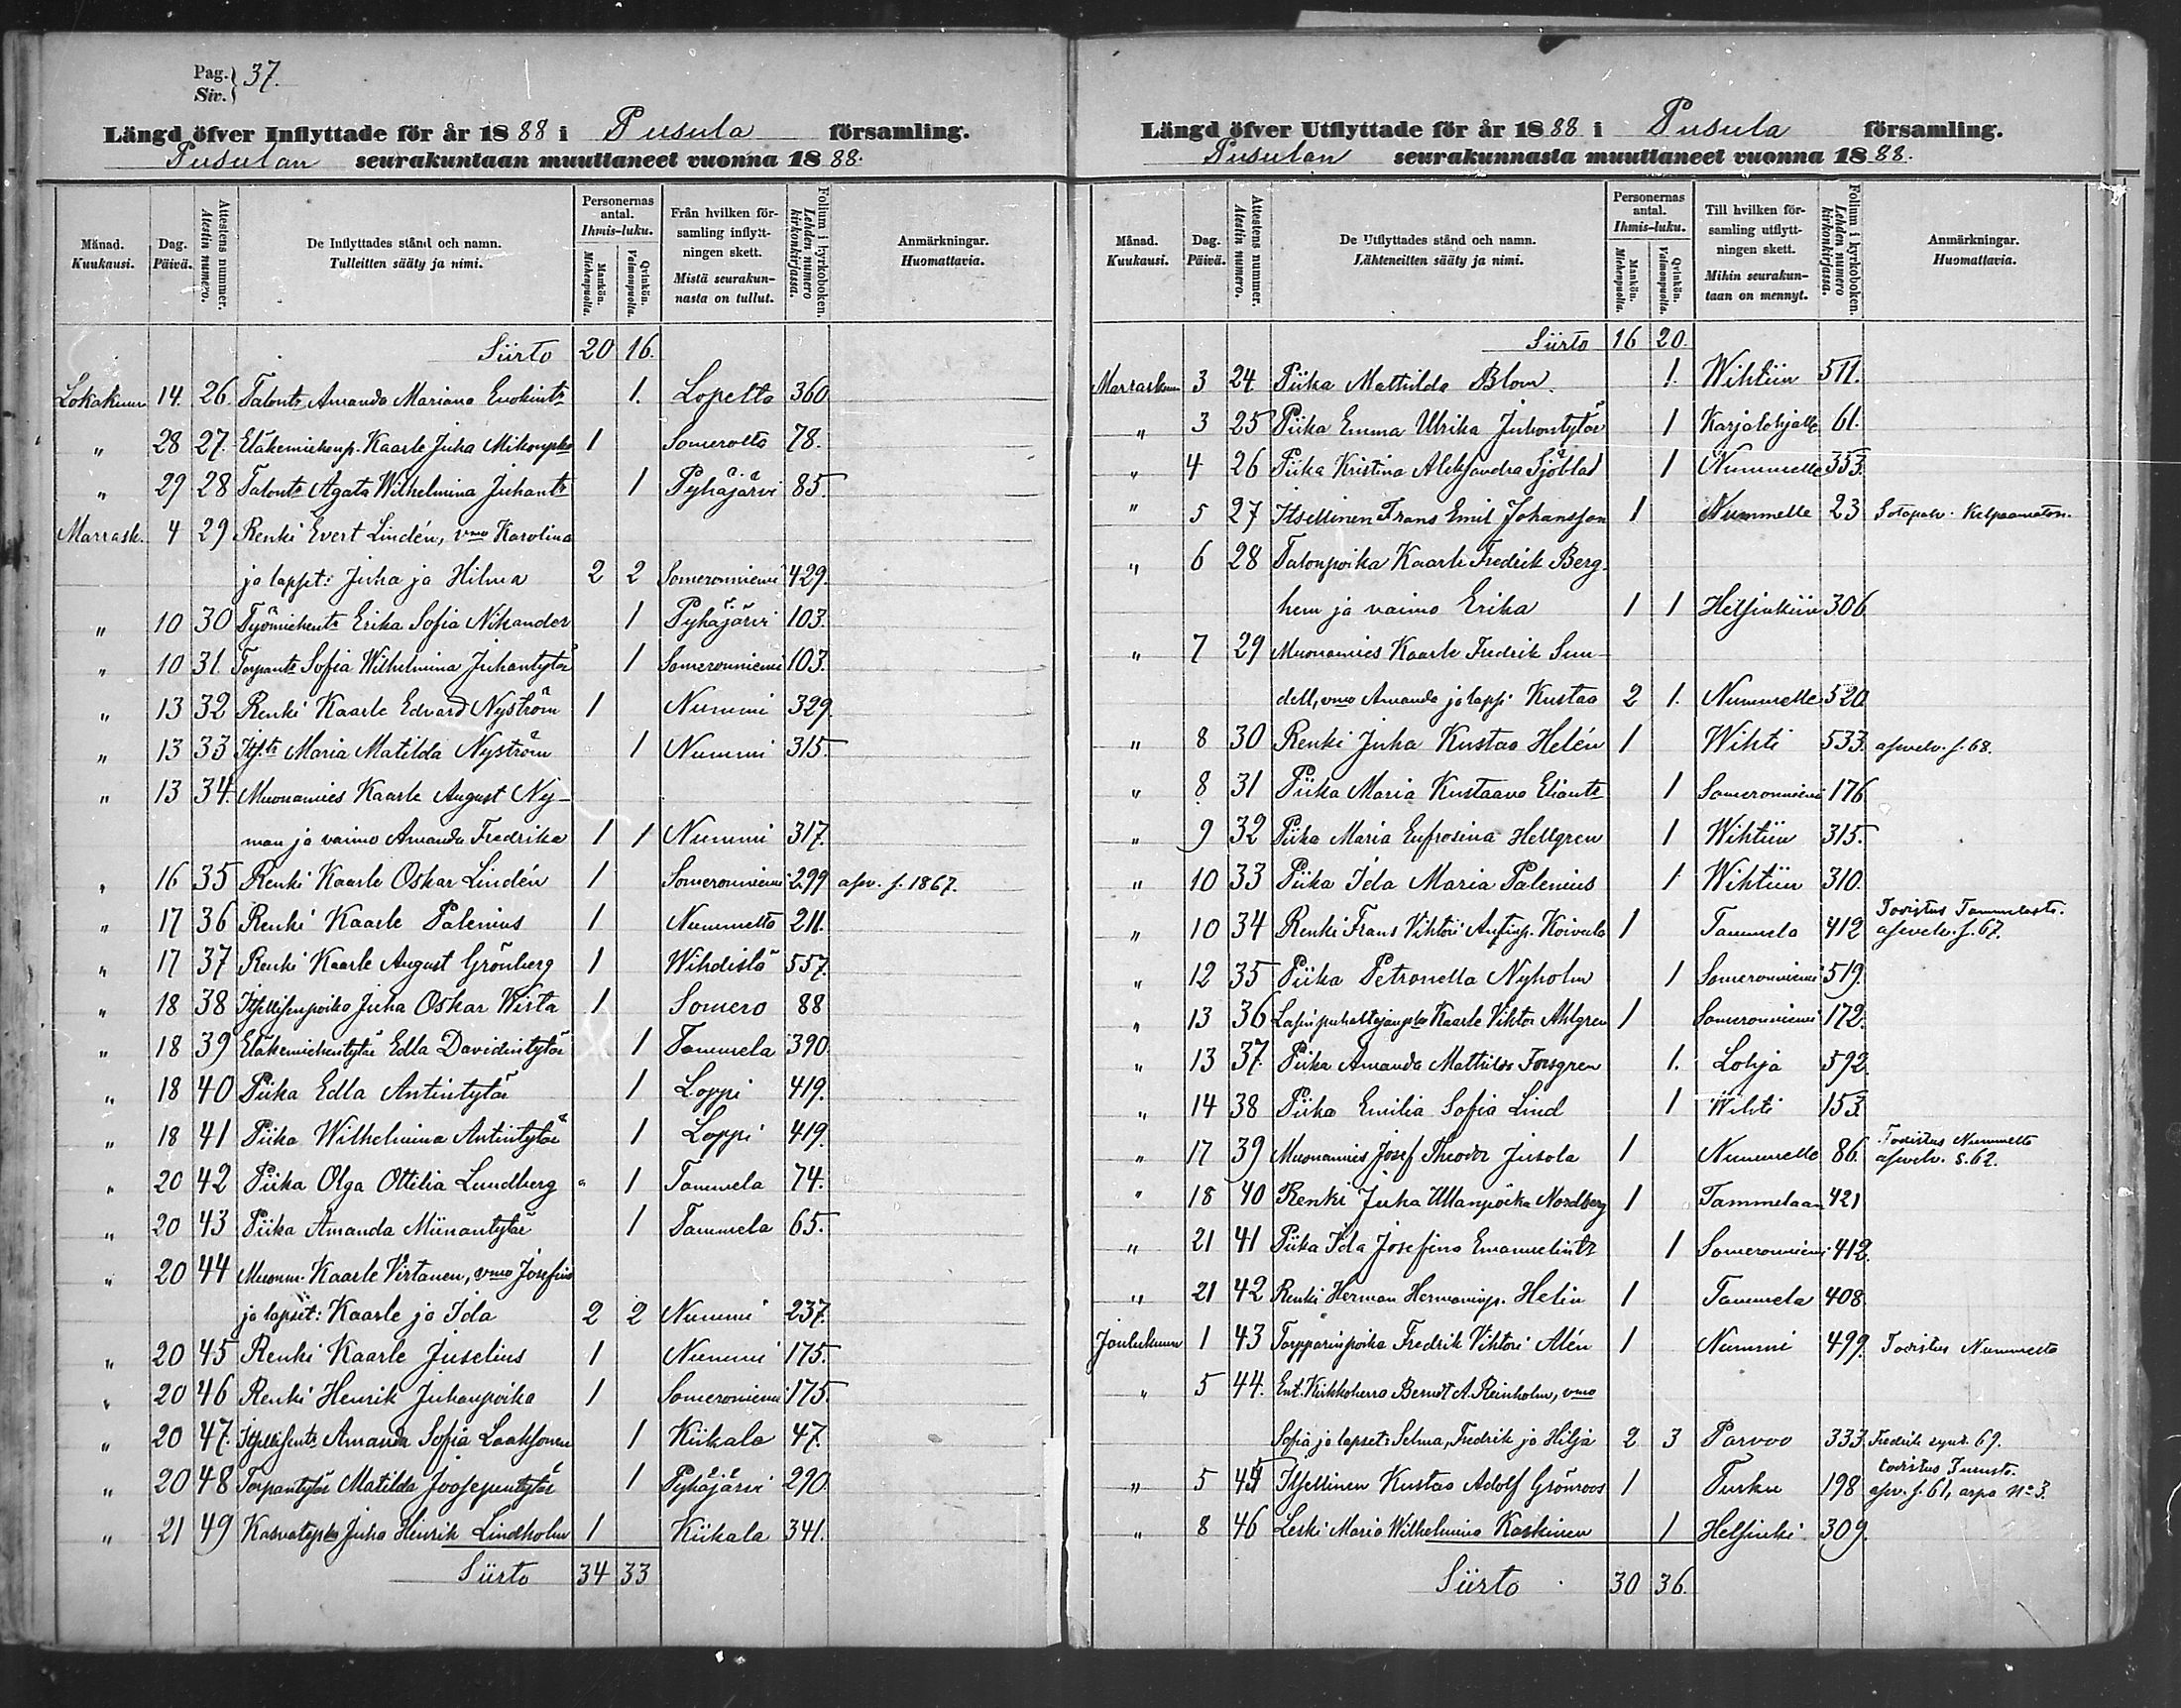 Pag. } 37.
Siv. }
Längd öfver Inflyttade för år 1888 i Pusula församling.
Pusulan seurakuntaan muuttaneet vuonna 1888.
Månad. Kuukausi.
Dag. Päivä.
Attestens nummer. Atestin numero.
De Inflyttades stånd och namn. Tulleitten sääty ja nimi.
Personernas antal. Ihmis-luku.
Mankön. Miehenpuolia.
Qvinkön. Vaimonpuolia.
Från hvilken församling inflyttningen skett. Mistä seurakunnasta on tullut.
Folium i kyrkoboken. Lehden numero kirkonkirjassa.
Anmärkningar. Huomattavia.
Siirto 20 16.
Lokakuun 14. 26. Talontr Amanda Mariana Enokintr 1. Lopelta 360
" 28 27. Eläkemiehenp. Kaarle Juha Mikonpka 1 Somerolta 78.
" 29 28 Talontr Agata Wilhelmina Juhantr 1 Pyhäjärvi 85.
Marrask. 4 29 Renki Evert Lindén, vmo Karolina
ja lapset: Juha ja Hilma 2 2 Someronniemi 429.
" 10 30 Työmiehentr Erika Sofia Nikander 1 Pyhäjärvi 103.
" 10 31. Torpantr Sofia Wilhelmina Juhantytär 1 Someronniemi 103.
" 13 32 Renki Kaarle Edvard Nyström 1 Nummi 329.
" 13 33 Its.tr Maria Matilda Nyström 1 Nummi 315.
" 13 34. Muonamies Kaarle August Ny-
man ja vaimo Amanda Fredrika 1 1 Nummi 317.
" 16 35 Renki Kaarle Oskar Lindén 1 Someronniemi 299 asev. s. 1867.
" 17 36 Renki Kaarle Palenius 1 Nummelta 211.
" 17 37 Renki Kaarle August Grönberg 1 Wihdistä 557.
" 18 38 Itsellisenpoika Juha Oskar Wirta 1 Somero 88
" 18 39 Eläkemiehentytär Edla Davidintytär 1 Tammela 390.
" 18 40 Piika Edla Antintytär 1 Loppi 419.
" 18 41 Piika Wilhelmina Antintytär 1 Loppi 419.
" 20 42 Piika Olga Ottilia Lundberg " 1 Tammela 74.
" 20 43 Piika Amanda Miinantytär 1 Tammela 65.
" 20 44 Muonm. Kaarle Virtanen, vmo Josefina
ja lapset: Kaarle ja Ida 2 2 Nummi 237.
" 20 45 Renki Kaarle Juselius 1 Nummi 175.
" 20 46 Renki Henrik Juhanpoika 1 Someroniemi 175.
" 20 47. Itsellisentr Amanda Sofia Laaksonen 1 Kiikala 47.
" 20 48 Torpantytär Matilda Joosepintytär 1 Pyhäjärvi 290.
" 21 49 Kasvatepka Juha Henrik Lindholm 1 Kiikala 341.
Siirto 34 33
Längd öfver Utflyttade för år 1888 i Pusula församling.
Pusulan seurakunnasta muuttaneet vuonna 1888.
Månad. Kuukausi.
Dag. Päivä.
Attestens nummer. Atestin numero.
De Utflyttades stånd och namn. Lähteneitten sääty ja nimi.
Personernas antal. Ihmis-luku.
Mankön. Miehenpuolia.
Qvinkön. Vaimonpuolia.
Till hvilken församling utflyttningen skett. Mihin seurakuntaan on mennyt.
Folium i kyrkoboken. Lehden numero kirkonkirjassa.
Anmärkningar. Huomattavia.
Siirto 16 20.
Marraskuun 3 24 Piika Mathilda Blom. 1. Wihtiin 511.
" 3 25 Piika Emma Ulrika Juhontytär 1 Karjalohjalle 61.
" 4 26 Piika Kristina Aleksandra Sjöblad 1 Nummelle 353.
" 5 27 Itsellinen Frans Emil Johansson 1 Nummelle 23 Sotapalv. Kelpaamaton.
" 6 28 Talonpoika Kaarle Fredrik Berg-
hem ja vaimo Erika 1 1 Helsinkiin 306
" 7 29 Muonamies Kaarle Fredrik Sun-
dell, vmo Amanda ja lapsi Kustaa 2 1. Nummelle 520
" 8 30 Renki Juha Kustaa Helén 1 Wihti 533. asevelv. s. 68.
" 8 31 Piika Maria Kustaava Eliantr 1 Someronniemi 176
" 9 32 Piika Maria Eufrosina Hellgren 1 Wihtiin 315.
" 10 33 Piika Ida Maria Palenius 1 Wihtiin 310.
" 10 34 Renki Frans Vihtori Antinp. Koivula 1 Tammela 412 Todistus Tammelasta. asevelv. s. 67.
" 12 35 Piika Petronella Nyholm 1 Someronniemi 519.
" 13 36 Lasinpuhaltajanpka Kaarle Viktor Ahlgren 1 Someronniemi 172.
" 13 37. Piika Amanda Mathilda Forsgren 1. Lohja 592.
" 14 38 Piika Emilia Sofia Lind 1 Wihti 153.
" 17 39 Muonamies Josef Theodor Jusola 1 Nummelle 86. Todistus Nummelta asevelv. s. 62.
" 18 40 Renki Juha Ullanpoika Nordberg 1 Tammelaan 421
" 21 41 Piika Ida Josefina Emanuelintr 1 Someronniemi 412.
" 21 42 Renki Herman Hermaninp. Helin 1 Tammela 408
Joulukuun 1 43 Torpparinpoika Fredrik Vihtori Alén 1 Nummi 499. Todistus Nummesta
" 5 44. Ent. Kirkkoherra Berndt A. Reinholm, vmo
Sofia ja lapset: Selma, Fredrik ja Hilja 2 3 Porvoo 333. Fredrik synt. 69.
" 5 45 Itsellinen Kustaa Adolf Grönroos 1 Turku 198 todistus Turusta. asev. s. 61, arpa No 3.
" 8 46 Leski Maria Wilhelmina Koskinen 1 Helsinki 309.
Siirto 30 36.